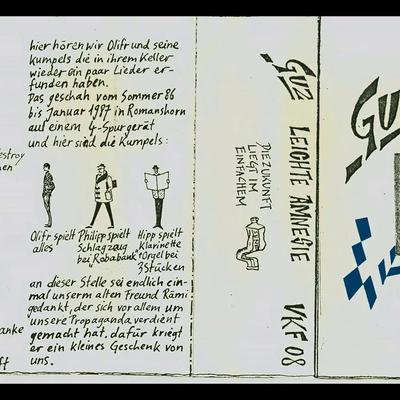 hier hören wir Olifr und seine
kumpels die in ihrem Keller
wieder ein paar Lieder er-
funden haben.
Das geschah vom Sommer 86
bis Januar 1987 in Romanshorn
auf einem 4-Spurgerät
und hier sind die Kumpels:
estroy
nen
Olifr spielt
alles
Philipp spielt
Schlagzeug
bei "Robabänk"
Hipp spielt
Klarinette
+Orgel bei
3 Stücken
an dieser Stelle sei endlich ein-
mal unserm alten Freund Rämi
gedankt, der sich vor allem um
unsere Propaganda verdient
gemacht hat. dafür kriegt
er ein kleines Geschenk von
uns.
anke
ft
DIE ZUKUNFT
LIEGT IM
EINFACHEM
GUZ LEICHTE AMNESIE VKF 08
GUZ